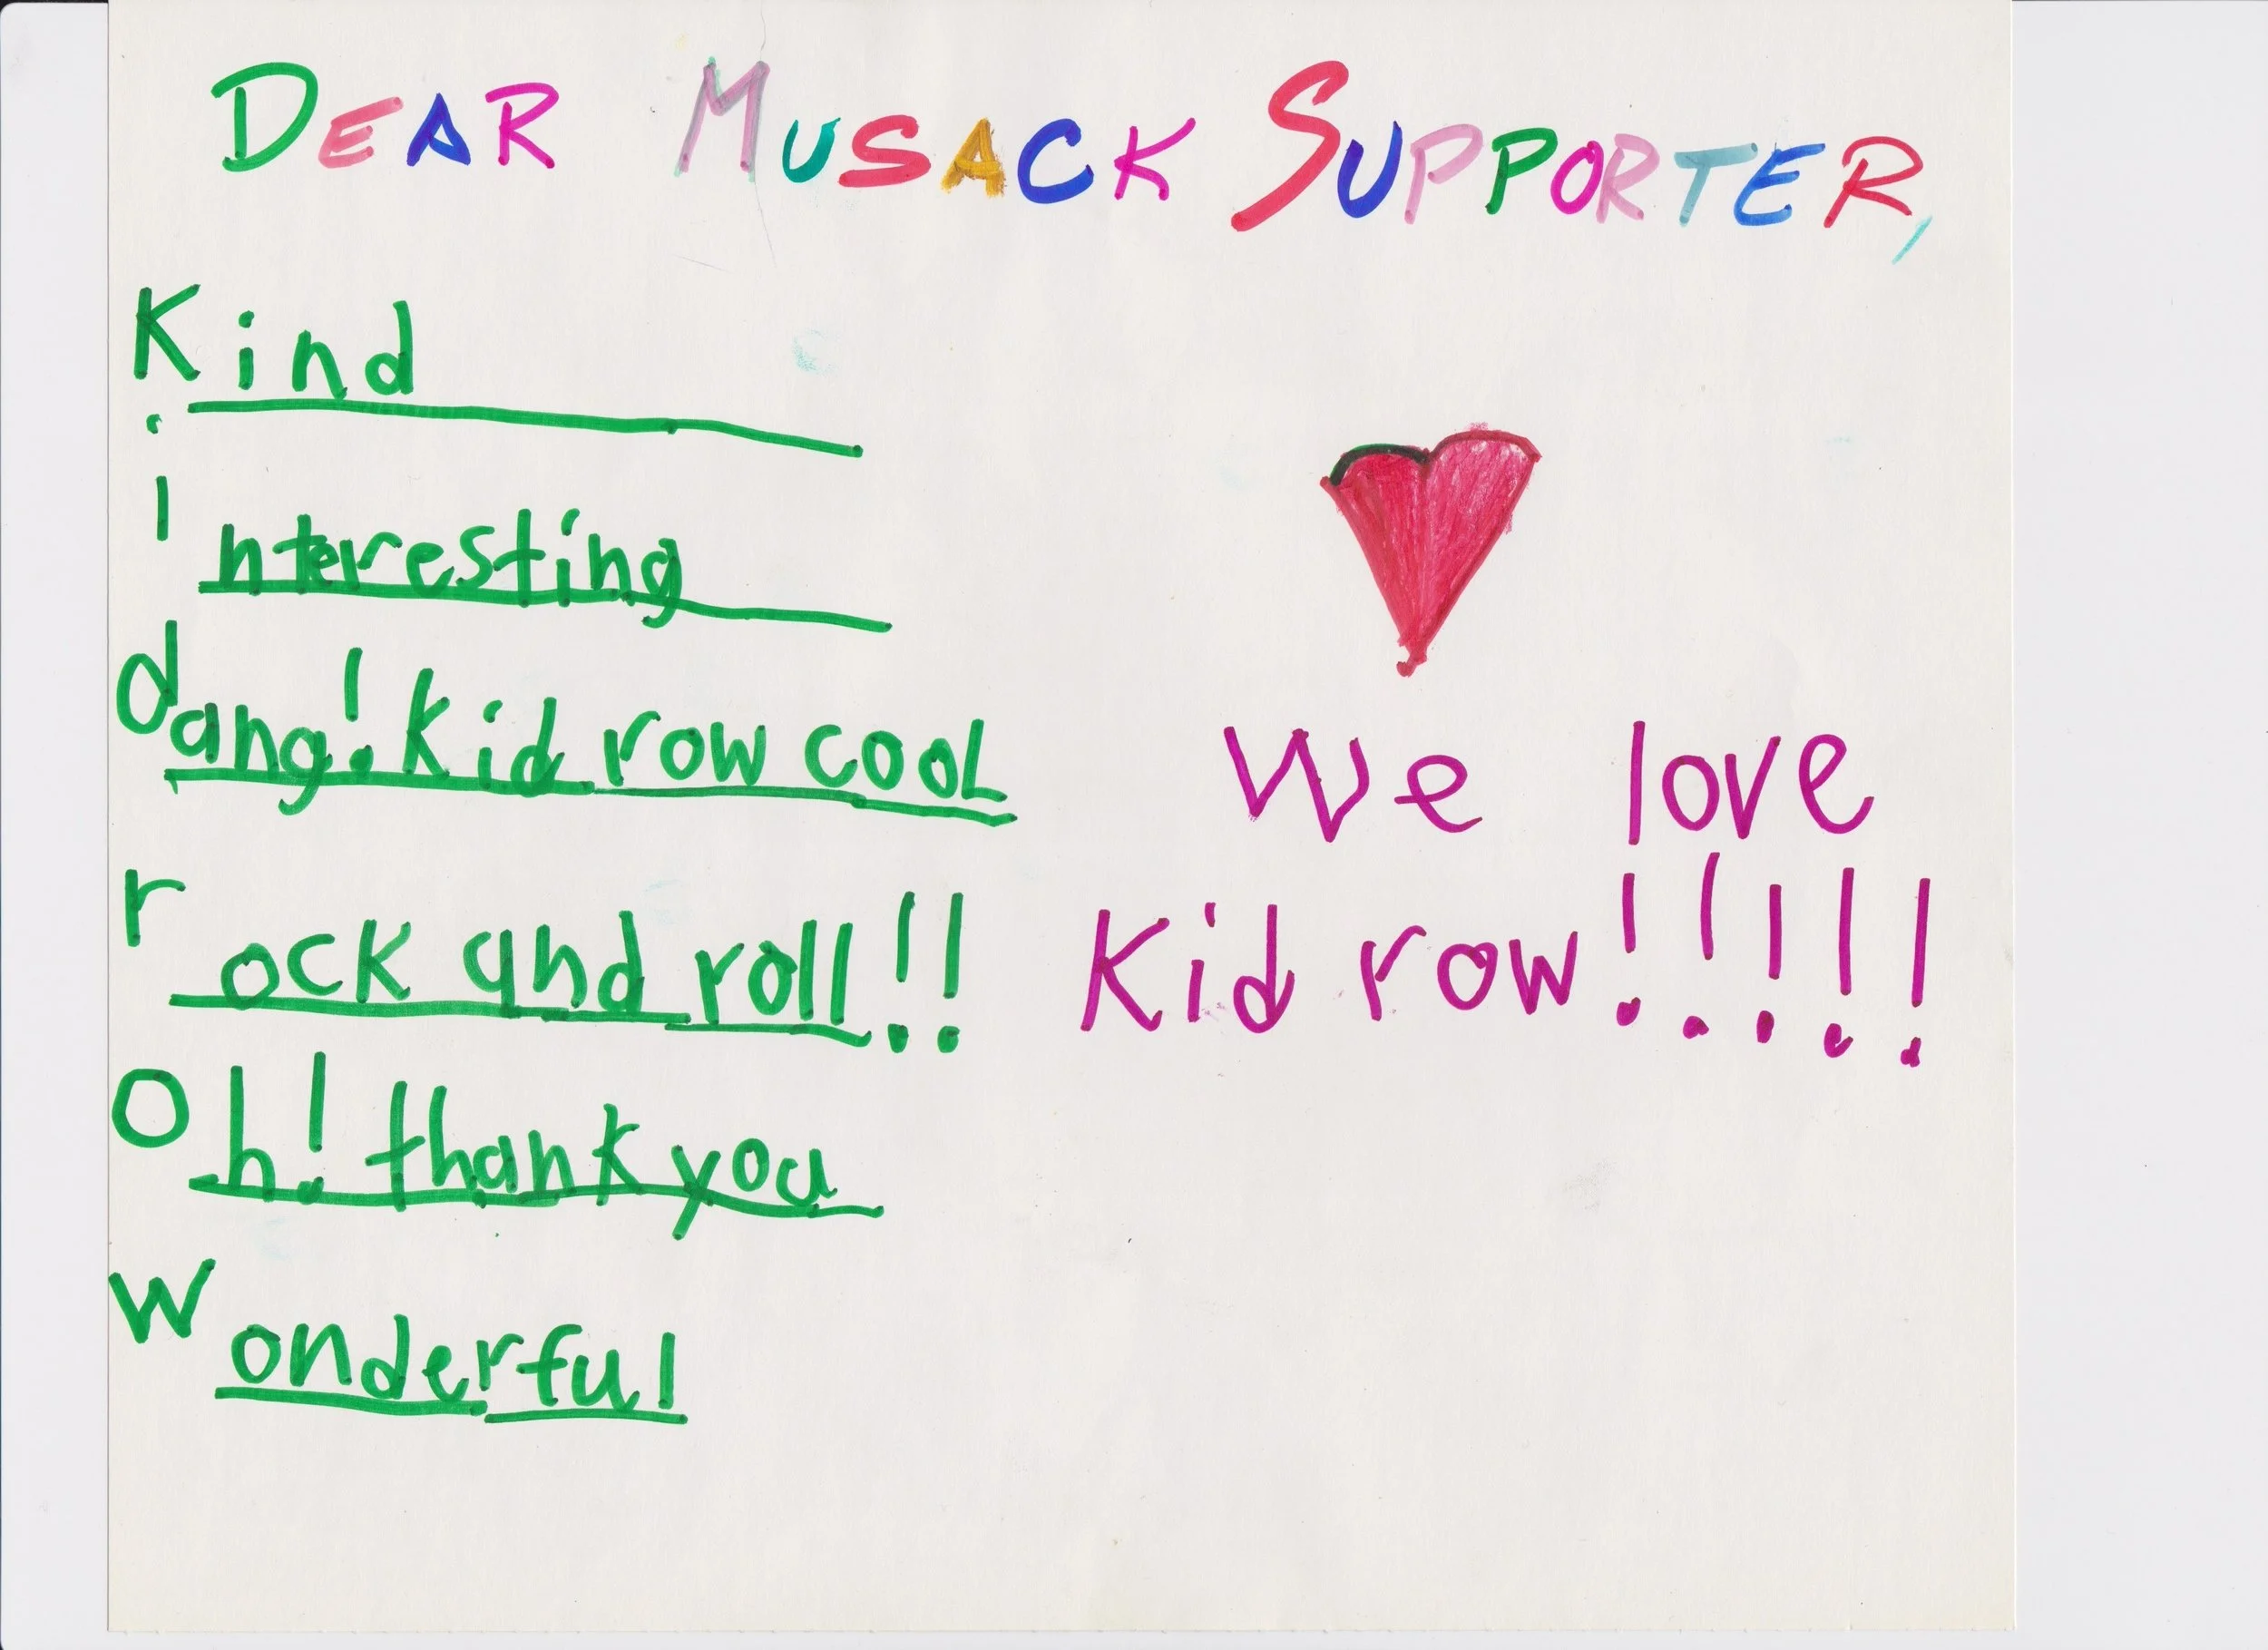 DEAR MUSACK SUPPORTER,
Kind
interesting
dang! Kid row cool
rock and roll!!
Oh! thank you
wonderful
We love
Kid row!!!!!